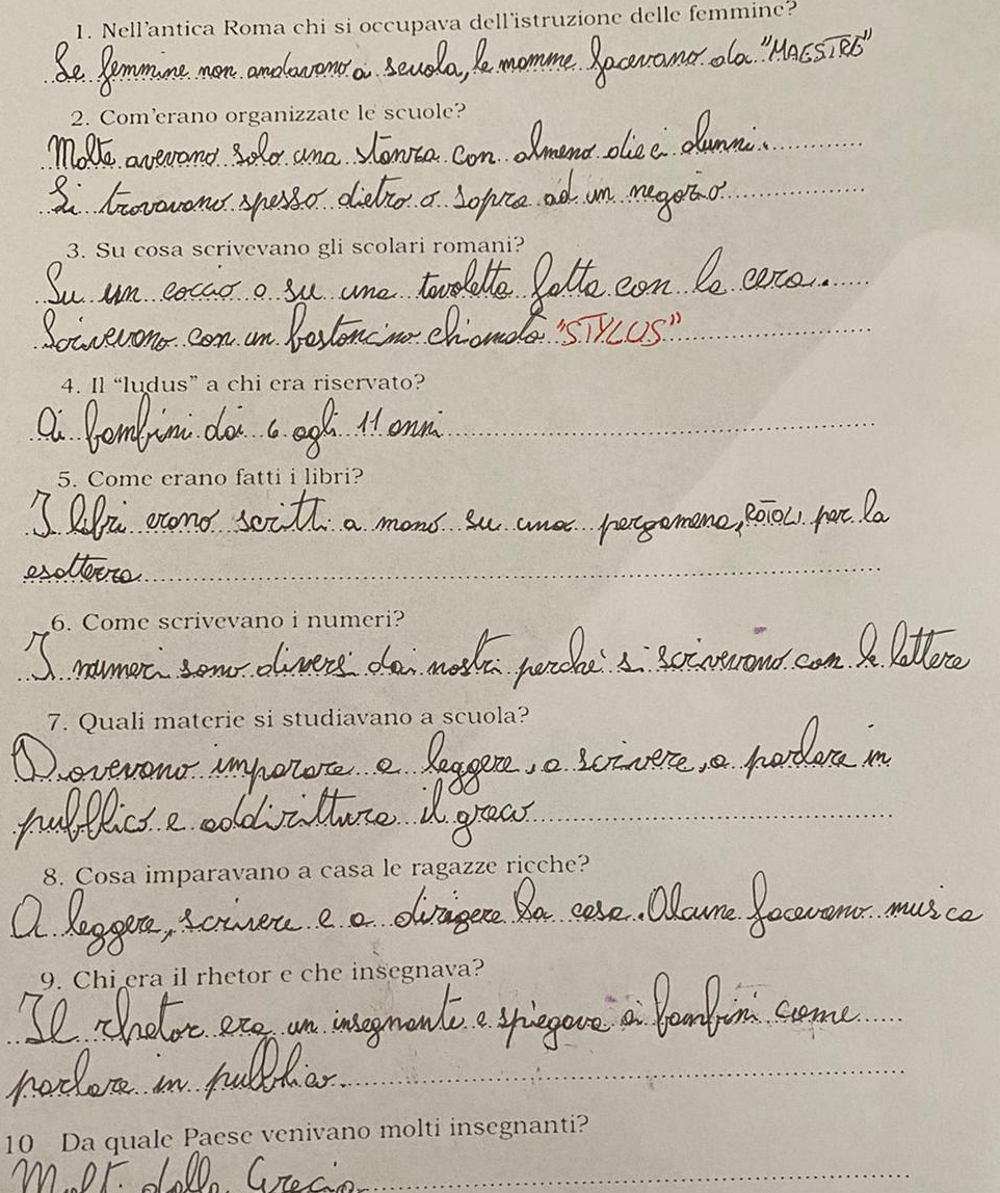 1. Nell'antica Roma chi si occupava dell'istruzione delle femmine?
Le femmine non andavano a scuola, le mamme facevano da "MAESTRE"
2. Com'erano organizzate le scuole?
Molte avevano solo una stanza con almeno dieci alunni.
Si trovavano spesso dietro o sopra ad un negozio
3. Su cosa scrivevano gli scolari romani?
Su un coccio o su una tavoletta fatta con la cera.
Scrivevano con un bastoncino chiamato "STYLUS"
4. Il "ludus" a chi era riservato?
Ai bambini dai 6 agli 11 anni
5. Come erano fatti i libri?
I libri erano scritti a mano su una pergamena, ROTOLI per la
esattezza
6. Come scrivevano i numeri?
I numeri sono diversi dai nostri perché si scrivevano con le lettere
7. Quali materie si studiavano a scuola?
Dovevano imparare a leggere, a scrivere, a parlare in
pubblico e addirittura il greco
8. Cosa imparavano a casa le ragazze ricche?
A leggere, scrivere e a dirigere la casa. Alcune facevano musica
9. Chi era il rhetor e che insegnava?
Il rhetor era un insegnante e spiegava ai bambini come
parlare in pubblico.
10 Da quale Paese venivano molti insegnanti?
Molti dalla Grecia